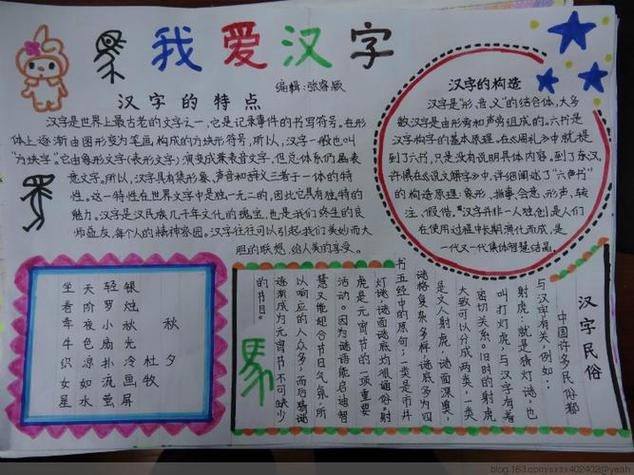 我爱汉字
编辑:张睿颐
汉字的特点
汉字是世界上最古老的文字之一,它是记录事件的书写符号。在形
体上逐渐由图形变为笔画,构成的方块形符号,所以,汉字一般也叫
"方块字"。它由象形文字(表形文字)演变成兼表音文字,但总体系仍属表
意文字。所以,汉字具有集形象、声音和辞义三者于一体的特
性。这一特性在世界文字中是独一无二的,因此它具有独特的
魅力。汉字是汉民族几千年文化的瑰宝,也是我们终生的良
师益友,每个人的精神家园。汉字往往可以引起我们美妙而大
胆的联想,给人美的享受。
汉字的构造
汉字是"形、音、义"的结合体,大多
数汉字是由形旁和声旁组成的。六书是
汉字构字的基本原理。在《周礼》中就提
到了六书,只是没有说明具体内容。到了东汉,
许慎在《说文解字》中,详细阐述了"六书"
的构造原理:象形、指事、会意、形声、转
注、假借。汉字并非一人独创,是人们
在使用过程中长期演化而成,是
一代又一代集体智慧结晶。
坐天轻银
看阶罗烛
牵夜小秋 秋
牛色扇光
织凉扑冷杜夕
女如流画牧
星水萤屏
汉字民俗
中国许多民俗都
与汉字有关,例如:
射虎:就是猜灯谜,也
叫打灯虎,与汉字有着
密切关系。旧时的射虎
大致可以分成两类,一类
是文人射虎,谜面深奥,
谜格复杂多样,谜底多为四
书五经中的原句;一类是市井
灯谜,谜面谜底均很通俗。射
虎是元宵节的一项重要
活动。因为谜语能启迪智
慧又能迎合节日气氛,所
以响应的人众多,而后猜谜
逐渐成为元宵节不可缺少
的节目。
blog.163.com/sxsx402402@yeah